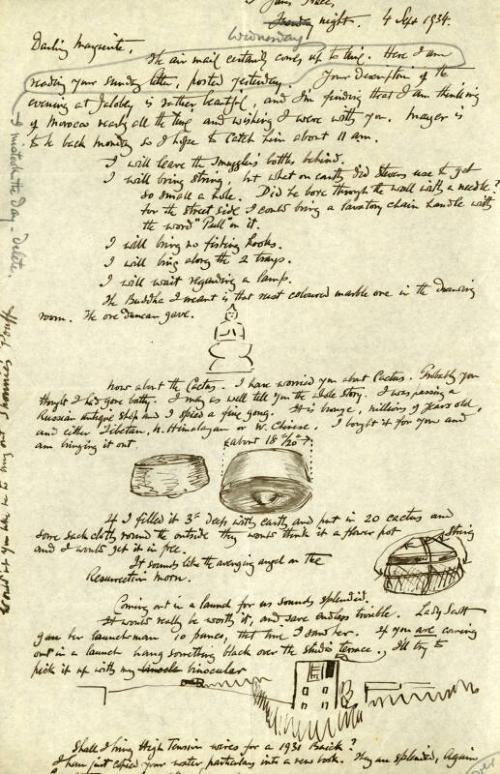 Wednesday
night. 4 Sept 1934.
Darling Marguerite,
The air mail certainly comes up to time. Here I am
reading your Sunday letter, posted yesterday. Your description of the
evening at is rather beautiful, and I'm finding that I am thinking
of Morocco nearly all the time and wishing I were with you. Mayer is
to be back Monday so I hope to catch him about 11 am.
I will leave the smugglers bottles behind.
I will bring string, but what on earth did use to get
so small a hole. Did he bore through the wall with a needle?
For the street side I could bring a lavatory chain handle with
the word "Pull" on it.
I will bring no fishing hooks.
I will bring along the 2 trays.
I will wait regarding a lamp.
The Buddha I meant is that nest coloured marble one in the drawing
room. The one Duncan gave.
Now about the Cactus. I have worried you about Cactus. Probably you
thought I had gone batty. I may as well tell you the whole story. I was passing a
Russian antique shop and I spied a fine gong. It is bronze, millions of years old,
and either Tibetan, N. Himalayan or W. Chinese. I bought it for you and
am bringing it out
about 18"
If I filled it 3" deep with earth and put in 20 cactus and
some sack cloth round the outside they would think it a flower pot
and I would get it in free.
String
It sounds like the avenging angel on the
Resurrection morn.
Coming out in a launch for us sounds splendid.
It would really be worth it, and save endless trouble. Lady Scott
gave her launchman 20 francs, that time I saw her. If you are coming
out in a launch hang something black over the studio terrace. I'll try to
pick it up with my binocular
Shall I bring High Tension wires for a 1931 Buick?
I have just copied your motor particulars into a new book. They are splendid, Again
I mistook the day - delete.